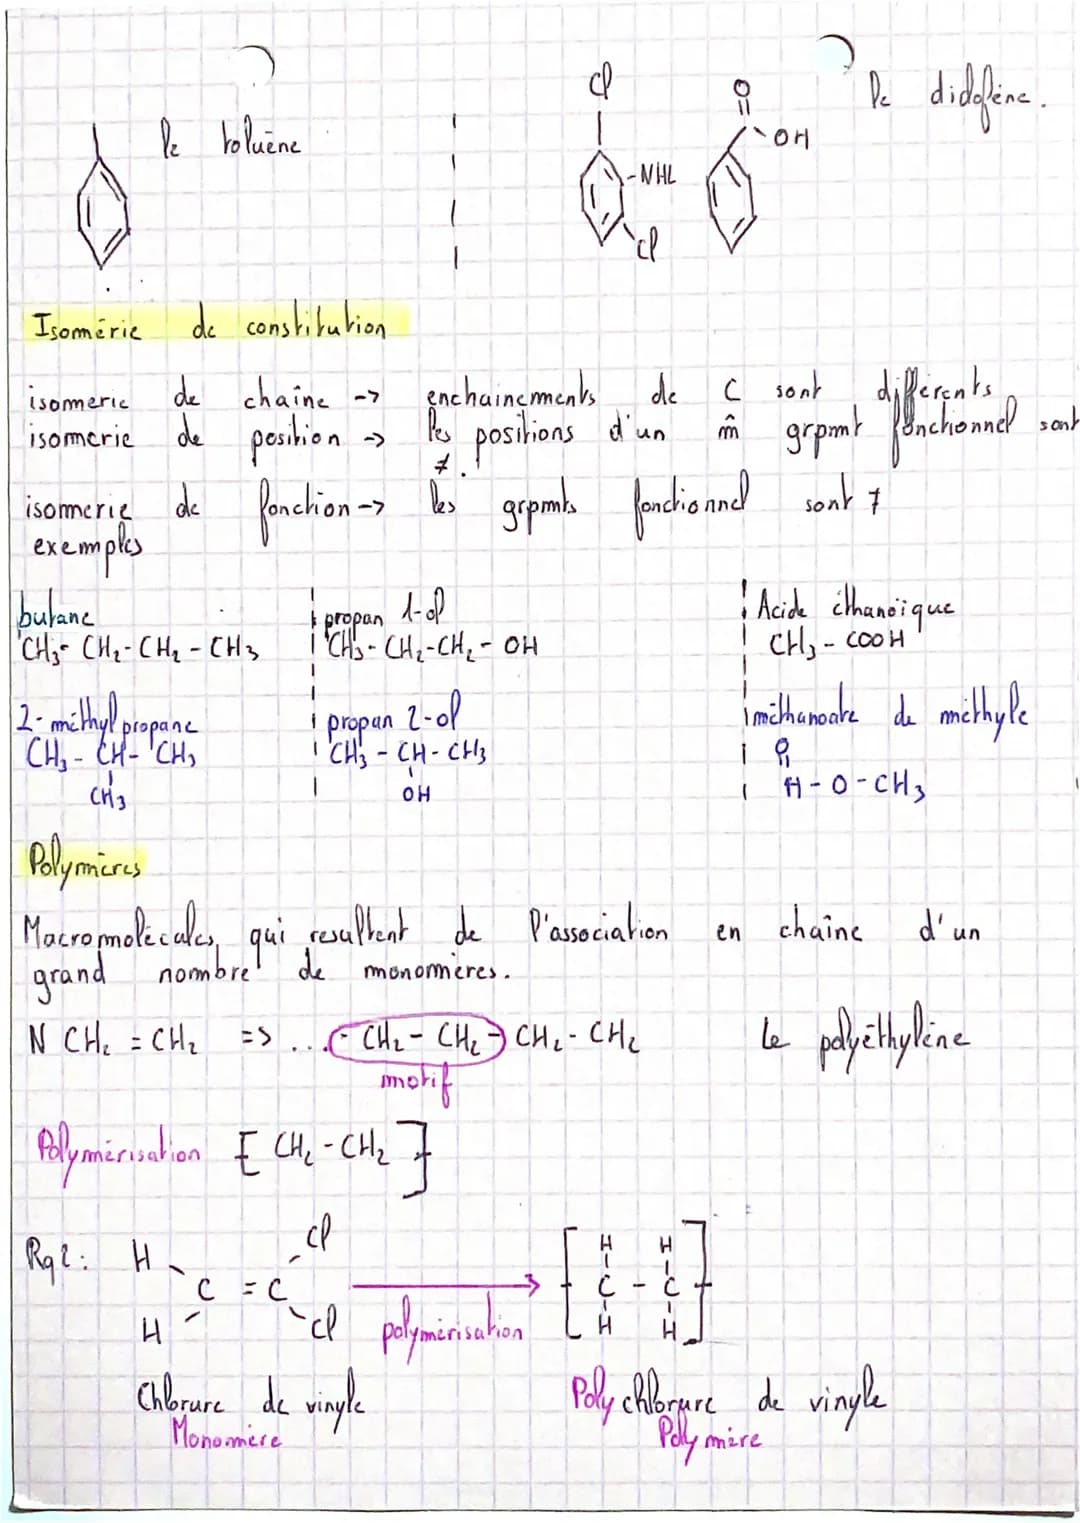 le toluène
Cl
NHL
Cl
O
OH
le diclofène.
Isomérie de constitution
isomerie de chaîne -> enchainements de C sont différents
isomerie de position -> les positions d'un m̂ grpmt fonctionnel sont ≠.
isomerie de fonction -> les grpmts fonctionnel sont ≠
exemples
butane
CH3- CH2-CH2 - CH3
2-méthylpropane
CH3 - CH - CH3
CH3
propan 1-ol
CH3- CH2-CH2 - OH
propan 2-ol
CH3 - CH - CH3
OH
Acide éthanoïque
CH3 - COOH
méthanoate de méthyle
O
H - O - CH3
Polymères
Macromolécules, qui resultent de l'association en chaîne d'un
grand nombre de monomères.
N CH2 = CH2 => ... - CH2 - CH2 - CH2 - CH2 Le polyéthylène
motif
Polymérisation [ CH2 - CH2 ]
Rq2:
H Cl
C = C
H Cl
polymérisation
H H
C - C
H H
Chlorure de vinyle
Monomère
Poly chlorure de vinyle
Polymère